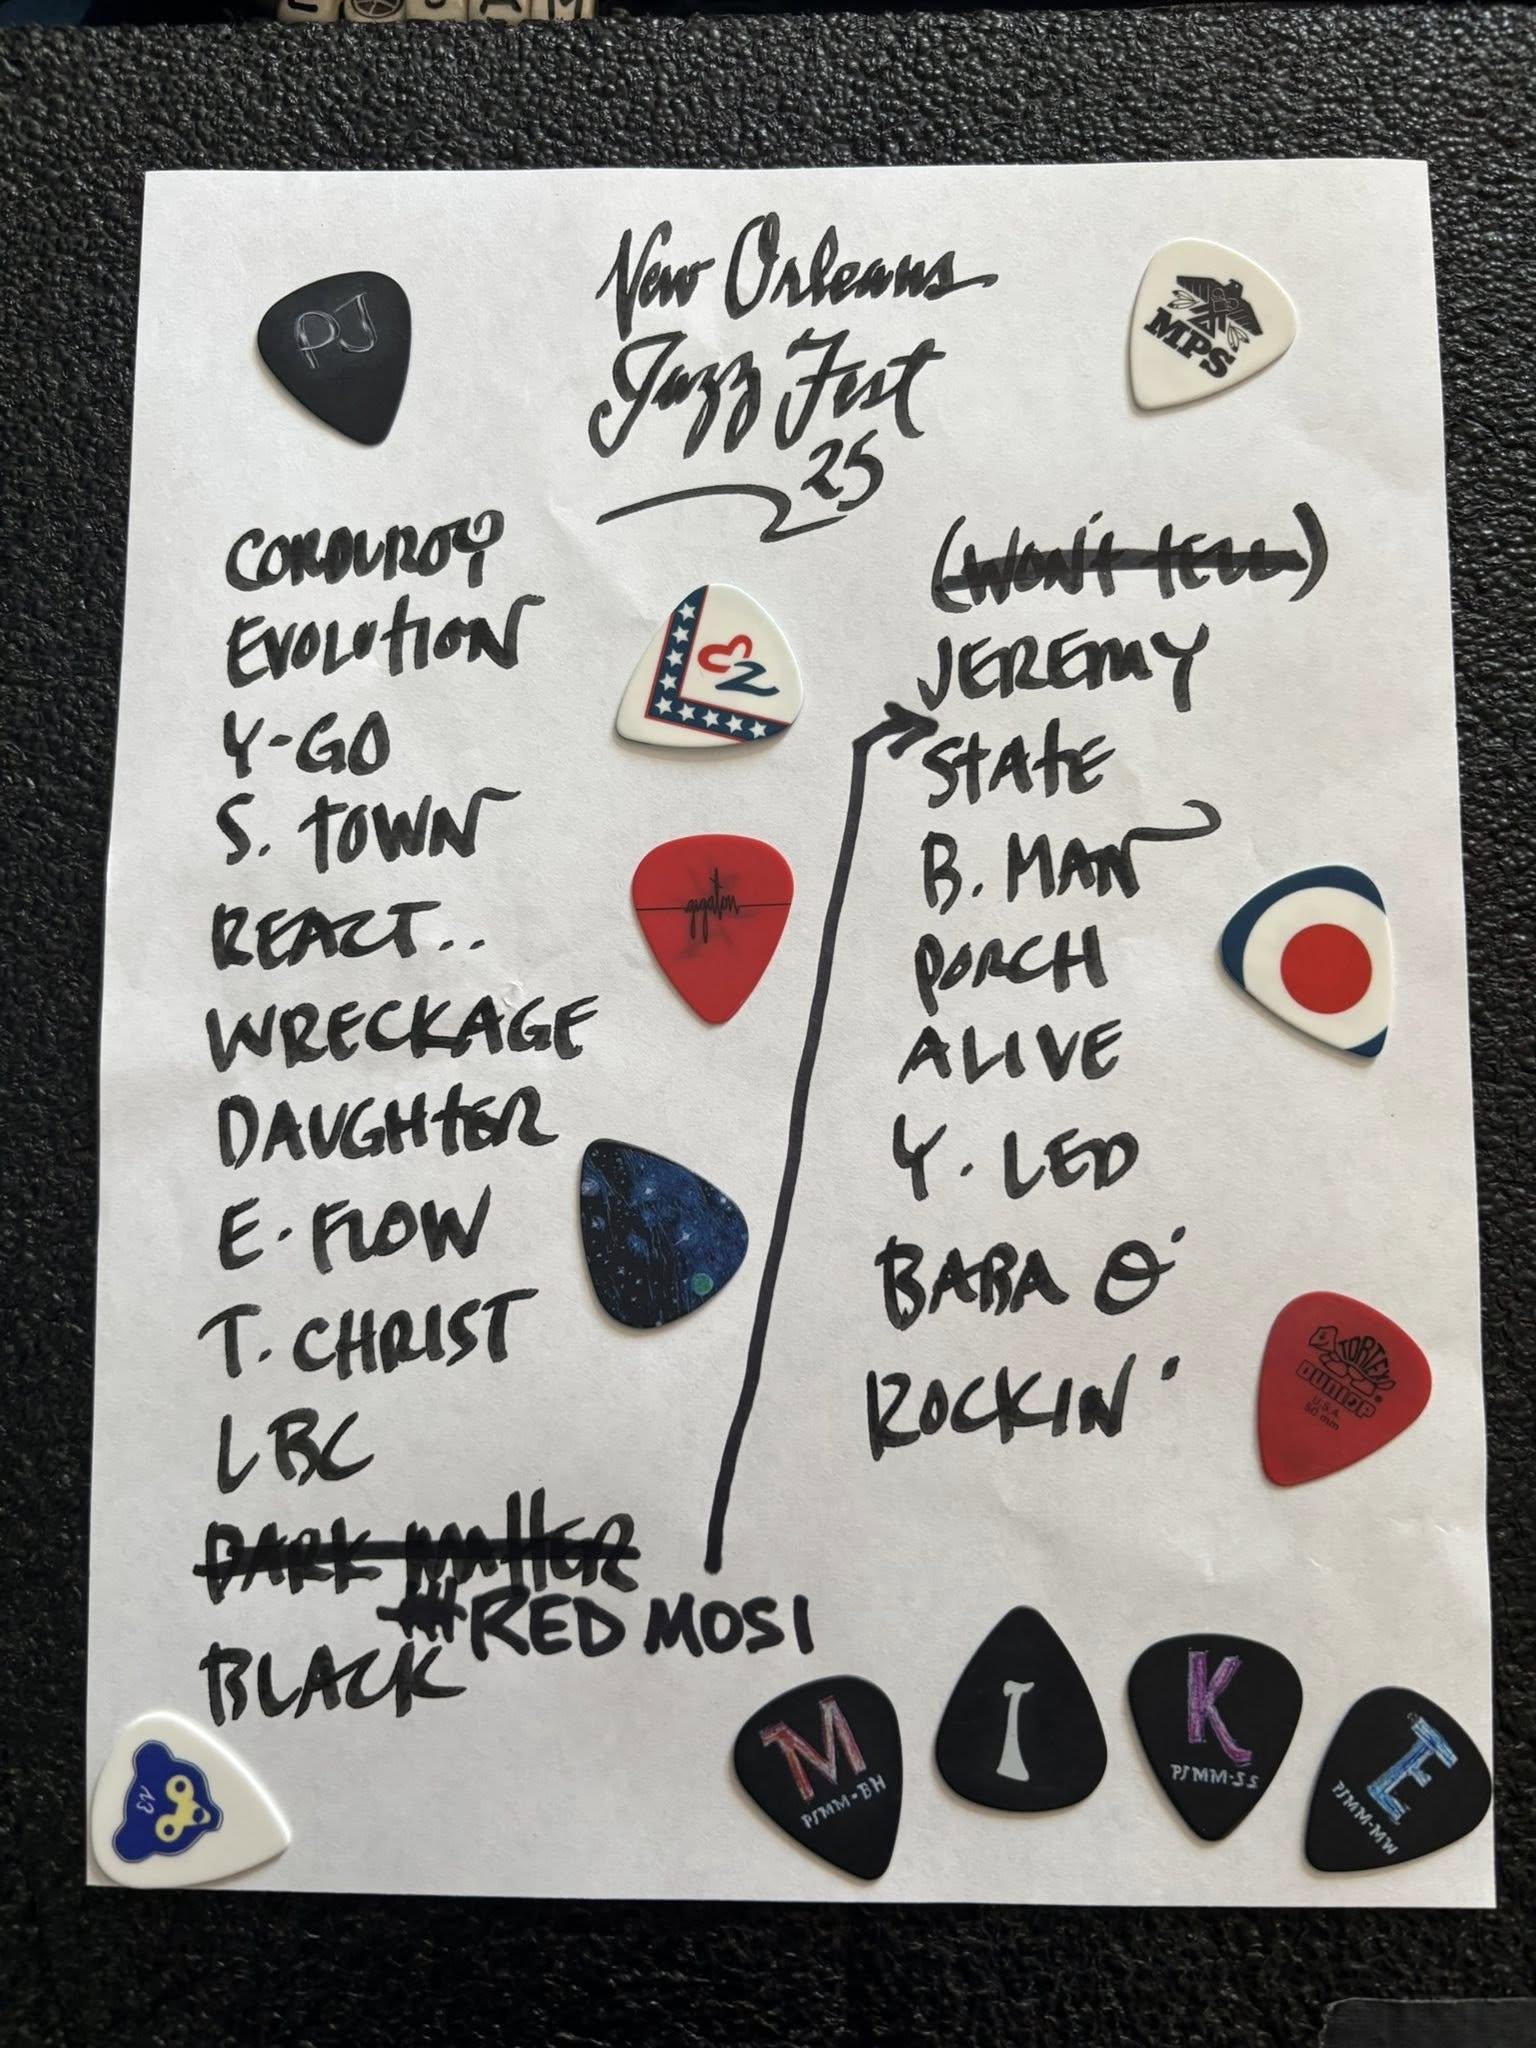 New Orleans
Jazz Fest
25
PJ
MPS
CORDUROY
EVOLUTION
Y-GO
S. TOWN
REACT..
gigaton
WRECKAGE
DAUGHTER
E. FLOW
T. CHRIST
LBC
DARK MATTER
RED MOSI
BLACK
(WON'T TELL)
JEREMY
STATE
B. MAN
PORCH
ALIVE
Y. LED
BABA O'
ROCKIN'
TORTEX
DUNLOP
U.S.A
.50 mm
13
M
PJMM-BH
I
K
PJMM-SS
E
PJMM-MW